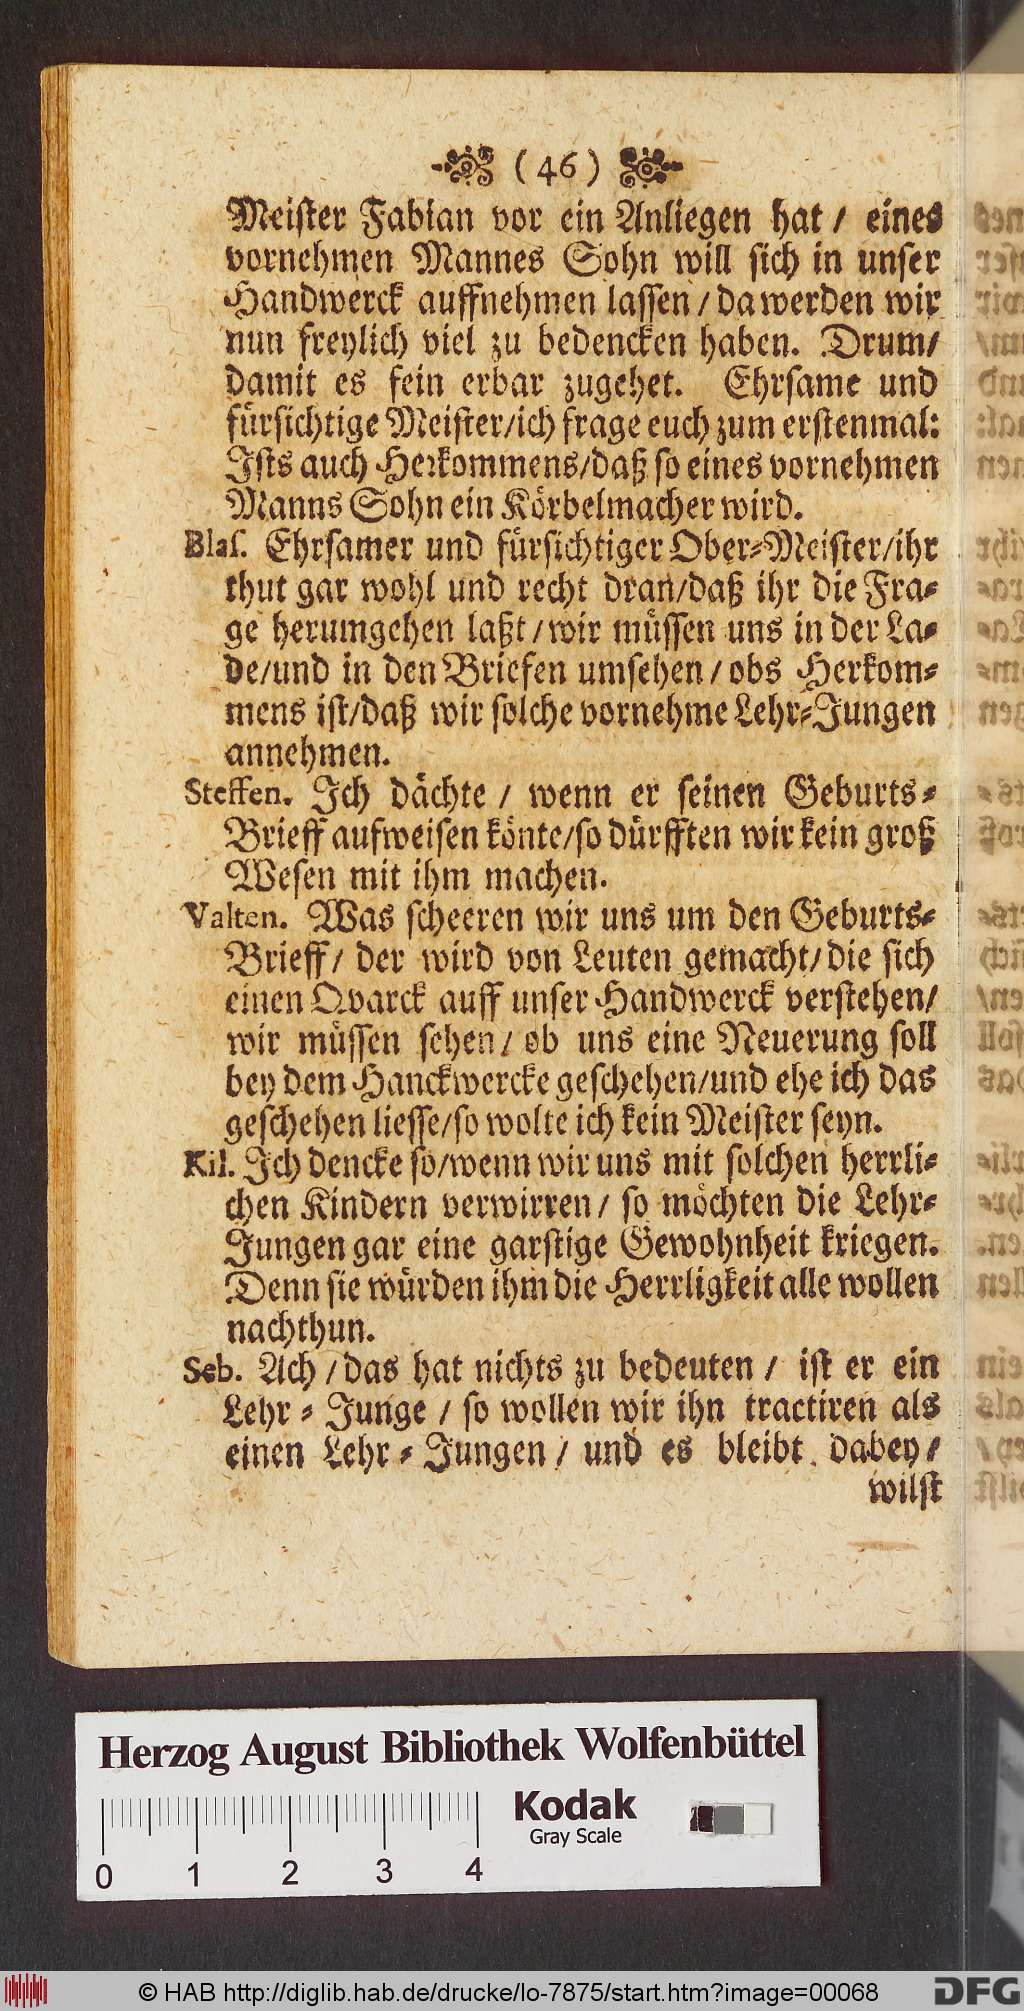 (46)
Meister Fabian vor ein Anliegen hat / eines
vornehmen Mannes Sohn will sich in unser
Handwerck auffnehmen lassen / da werden wir
nun freylich viel zu bedencken haben. Drum/
damit es fein erbar zugehet. Ehrsame und
fürsichtige Meister/ich frage euch zum erstenmal:
Ists auch Herkommens/daß so eines vornehmen
Manns Sohn ein Körbelmacher wird.
Blas. Ehrsamer und fürsichtiger Ober-Meister/ihr
thut gar wohl und recht dran/daß ihr die Fra-
ge herumgehen laßt / wir müssen uns in der La-
de/und in den Briefen umsehen / obs Herkom-
mens ist/daß wir solche vornehme Lehr-Jungen
annehmen.
Steffen. Ich dächte / wenn er seinen Geburts-
Brieff aufweisen könte/so dürfften wir kein groß
Wesen mit ihm machen.
Valten. Was scheeren wir uns um den Geburts-
Brieff/ der wird von Leuten gemacht/ die sich
einen Qvarck auff unser Handwerck verstehen/
wir müssen sehen/ ob uns eine Neuerung soll
bey dem Hanckwercke geschehen/und ehe ich das
geschehen liesse/so wolte ich kein Meister seyn.
Kil. Ich dencke so/wenn wir uns mit solchen herrli-
chen Kindern verwirren / so möchten die Lehr-
Jungen gar eine garstige Gewohnheit kriegen.
Denn sie würden ihm die Herrligkeit alle wollen
nachthun.
Seb. Ach / das hat nichts zu bedeuten / ist er ein
Lehr-Junge / so wollen wir ihn tractiren als
einen Lehr-Jungen / und es bleibt dabey /
wilst
Herzog August Bibliothek Wolfenbüttel
Kodak
Gray Scale
0 1 2 3 4
© HAB http://diglib.hab.de/drucke/lo-7875/start.htm?image=00068
DFG